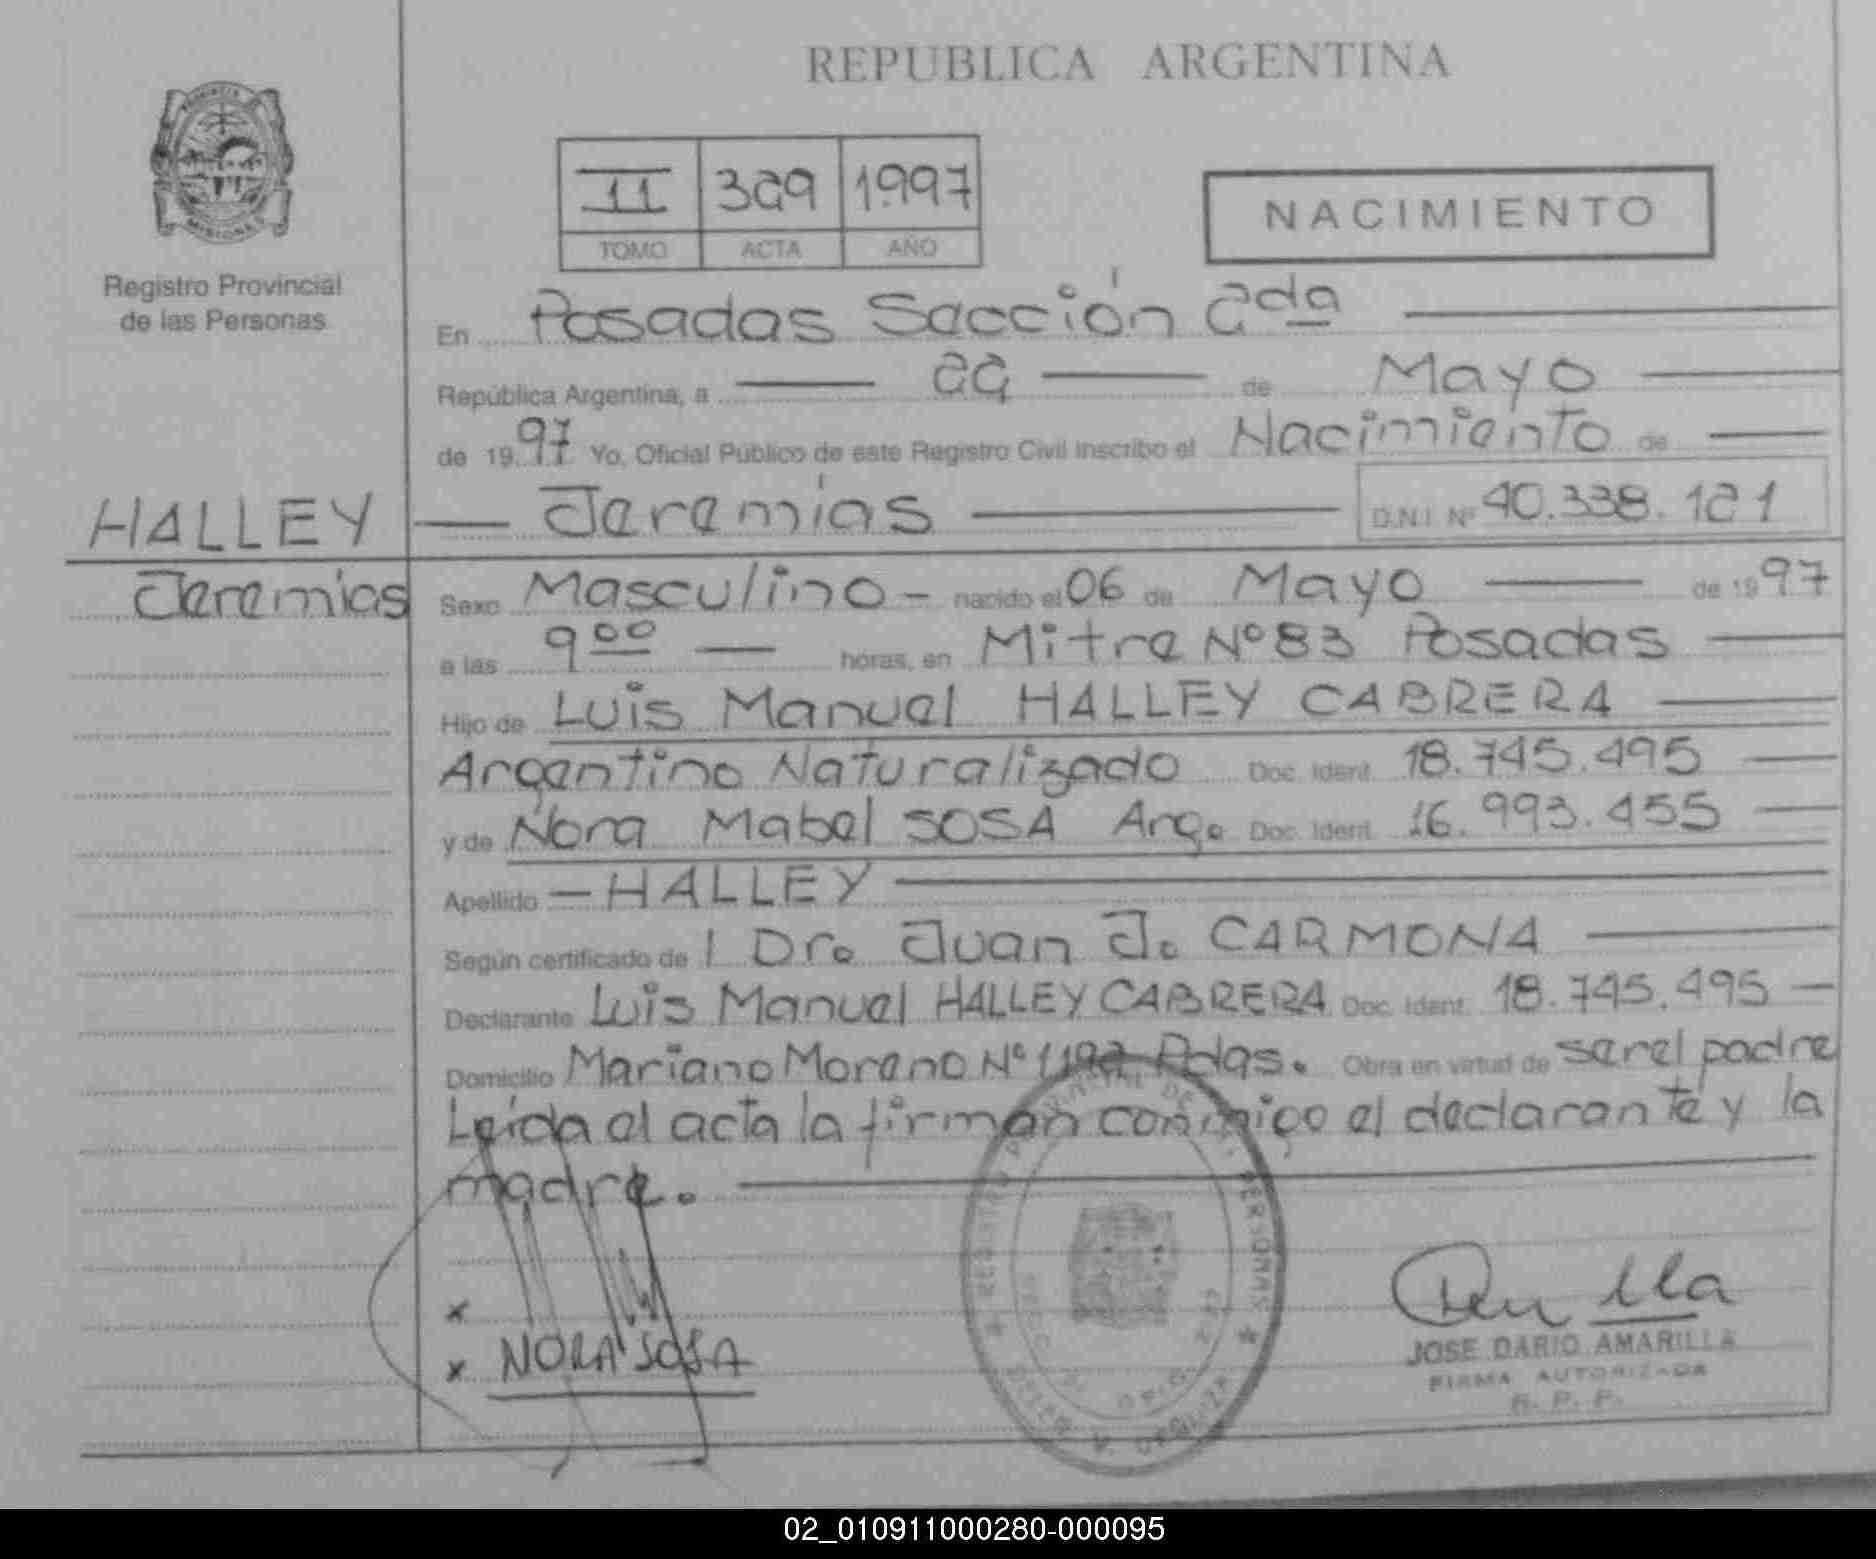 REPUBLICA ARGENTINA
PROVINCIA
MISIONES
Registro Provincial
de las Personas
II 329 1.997
TOMO ACTA AÑO
NACIMIENTO
En Posadas Sección 2da
República Argentina, a 22 de Mayo
de 1997 Yo, Oficial Público de este Registro Civil inscribo el Nacimiento de
HALLEY Jeremías D.N.I. Nº 40.338.121
Jeremías Sexo Masculino - nacido el 06 de Mayo de 1997
a las 9 00 horas, en Mitre Nº 83 Posadas
Hijo de Luis Manuel HALLEY CABRERA
Argentino Naturalizado Doc. Ident. 18.745.495
y de Nora Mabel SOSA Arg. Doc. Ident. 16.993.455
Apellido HALLEY
Según certificado de l Dr. Juan J. CARMONA
Declarante Luis Manuel HALLEY CABRERA Doc. Ident. 18.745.495
Domicilio Mariano Moreno Nº Pdas. Obra en virtud de ser el padre
Leída el acta la firman conmigo el declarante y la
madre.
x
x NORA SOSA
JOSE DARIO AMARILLA
FIRMA AUTORIZADA
R. P. P.
02_010911000280-000095